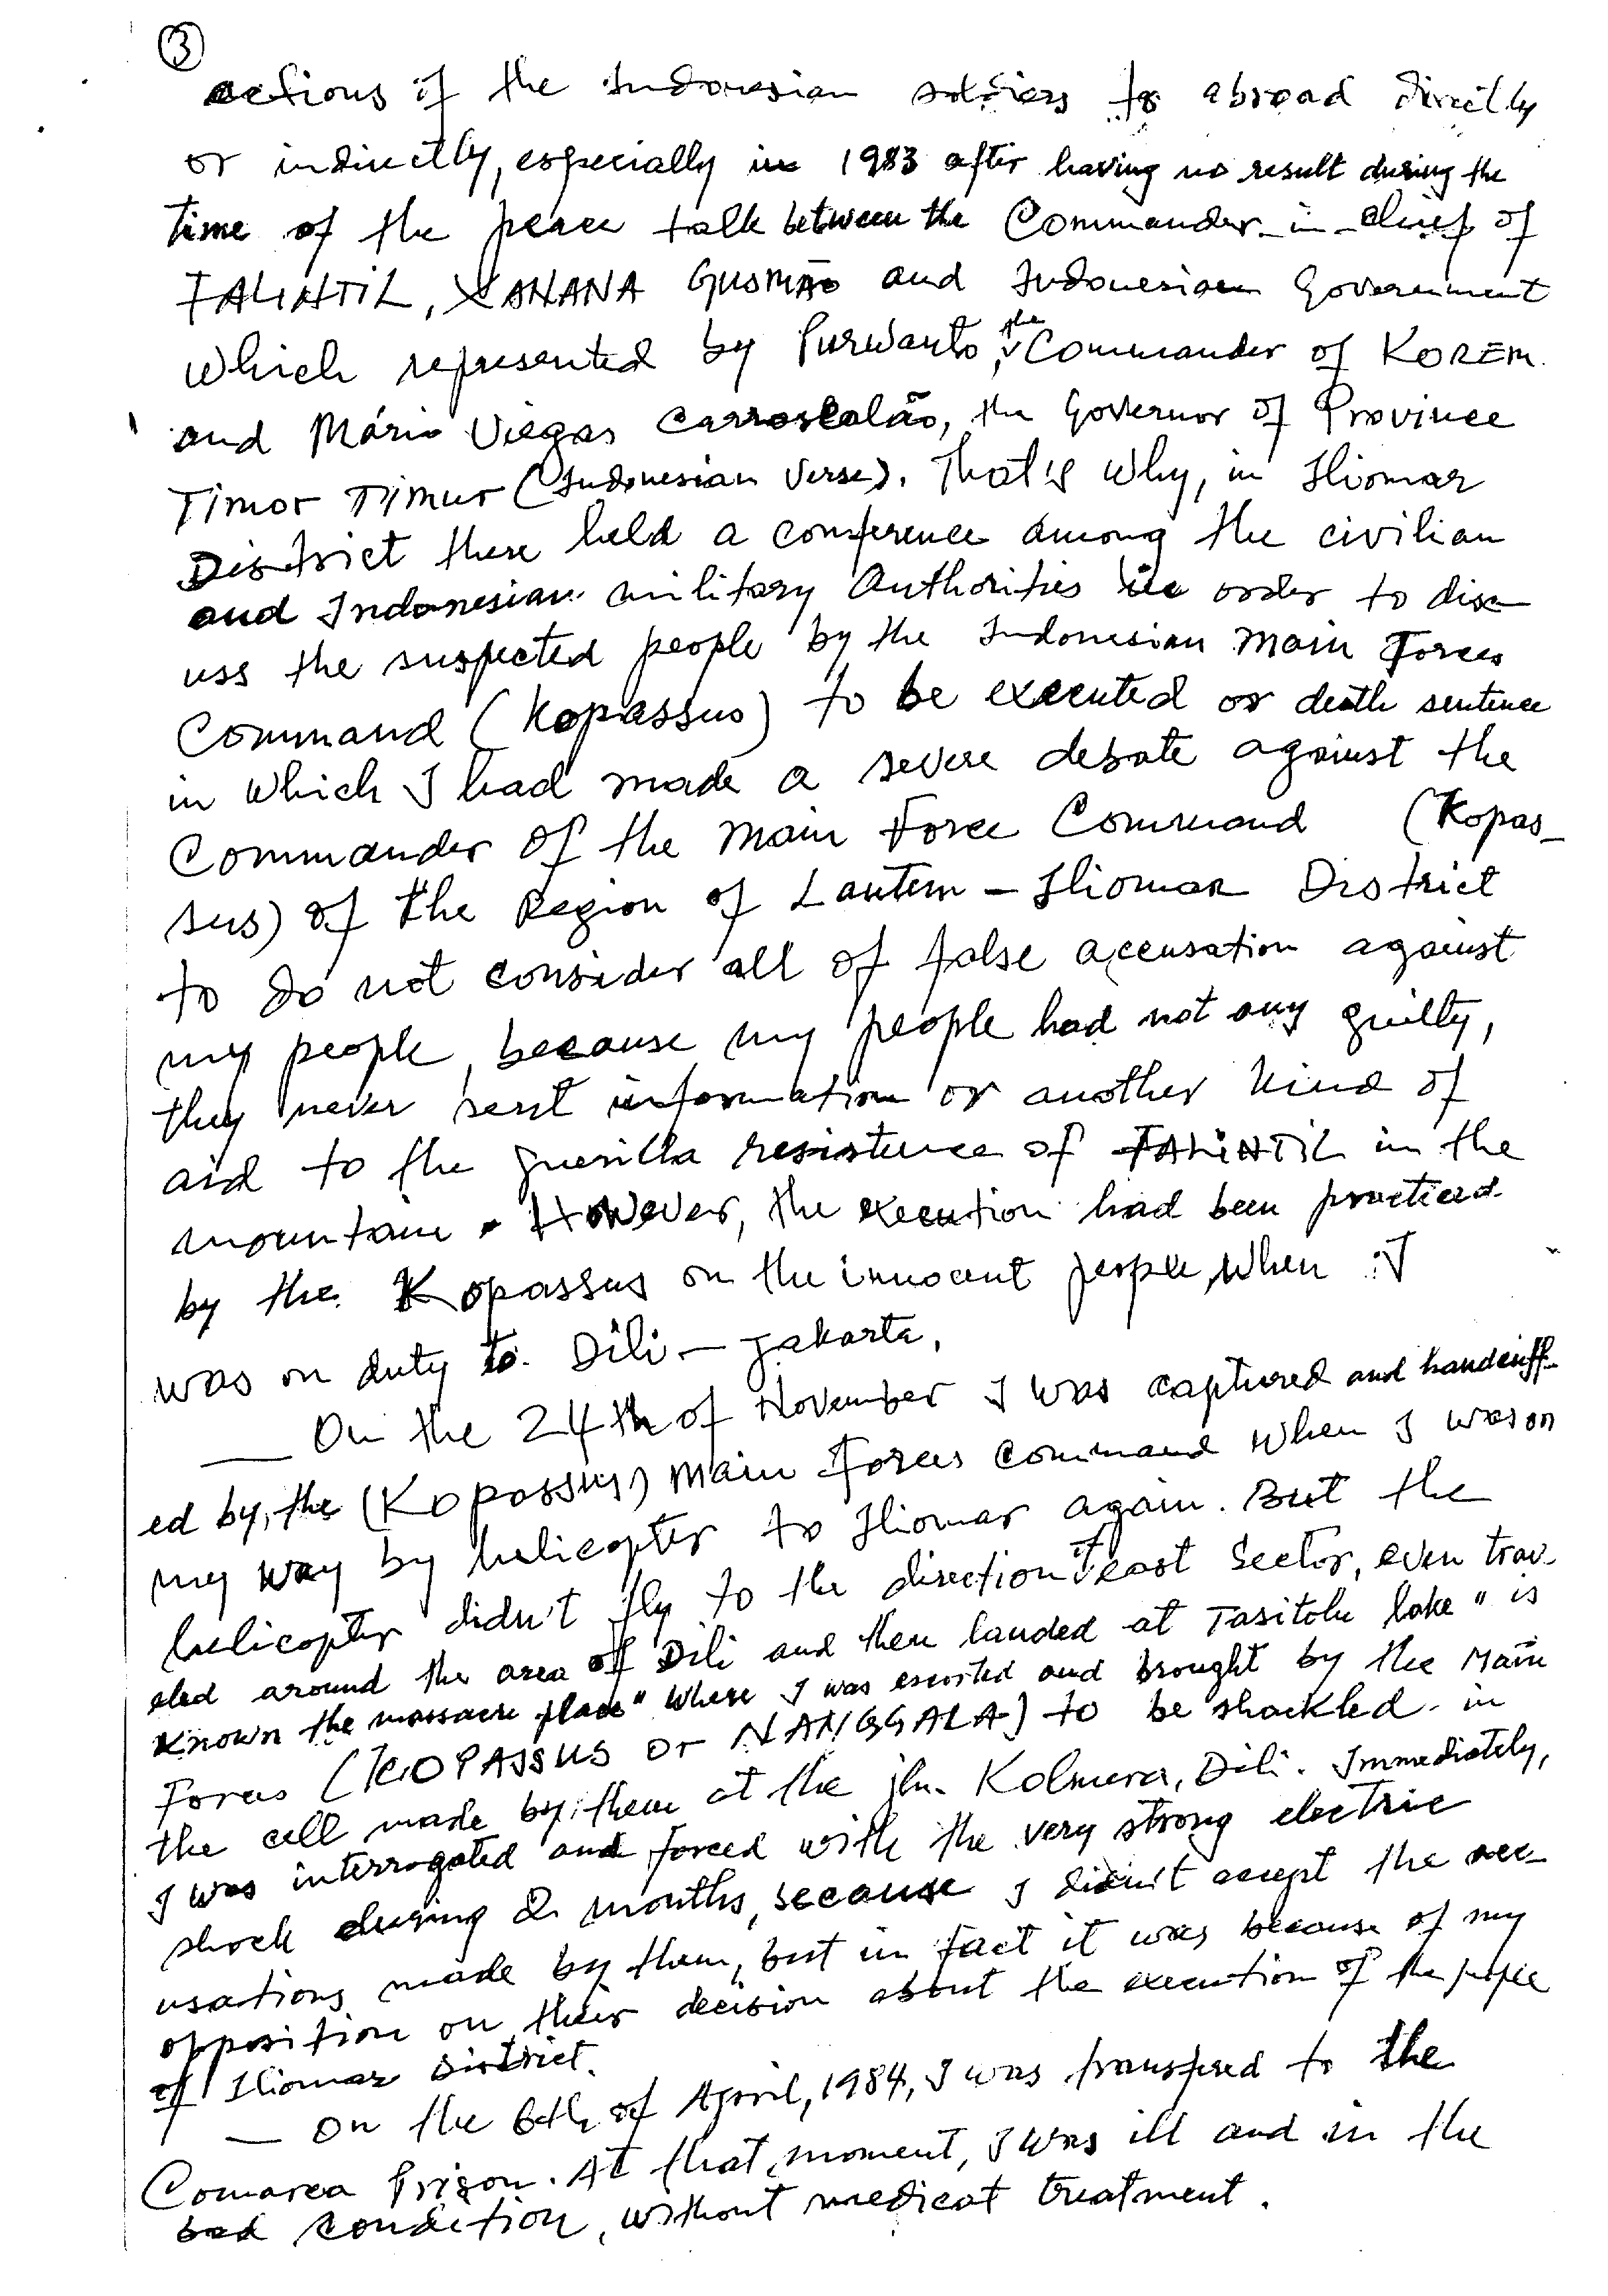 ③
actions of the Indonesian soldiers to abroad directly
or indirectly, especially in 1983 after having no result during the
time of the peace talk between the Commander-in-chief of
FALINTIL, XANANA GUSMÃO and Indonesian Government
which represented by Purwanto, the Commander of KOREM
and Mário Viegas Carrascalão, the Governor of Province
Timor Timur (Indonesian Verse). That's why, in Iliomar
District there held a conference among the civilian
and Indonesian military Authorities in order to disc
uss the suspected people by the Indonesian Main Forces
Command (Kopassus) to be executed or death sentence
in which I had made a severe debate against the
Commander of the Main Force Command (Kopas-
sus) of the Region of Lautem - Iliomar District
to do not consider all of false accusation against
my people, because my people had not any guilty,
they never sent information or another kind of
aid to the guerilla resistence of FALINTIL in the
mountain. However, the execution had been practiced
by the Kopassus on the innocent people, when I
was on duty to Dili - Jakarta.
— On the 24th of November I was captured and handcuff-
ed by, the (Kopassus) Main Forces Command when I was on
my way by helicopter to Iliomar again. But the
helicopter didn't fly to the direction of east Sector, even trav-
eled around the area of Dili and then landed at Tasitolu lake "is
known the massacre place" where I was escorted and brought by the Main
Forces (KOPASSUS or NANGGALA) to be shackled in
the cell made by them at the jln. Kolmera, Dili. Immediately,
I was interrogated and forced with the very strong electric
shock during 2 months, because I didn't accept the acc-
usations made by them, but in fact it was because of my
opposition on their decision about the execution of the people
of Iliomar District.
— On the 6th of April, 1984, I was transfered to the
Comarca Prison. At that moment, I was ill and in the
bad condition, without medicat treatment.